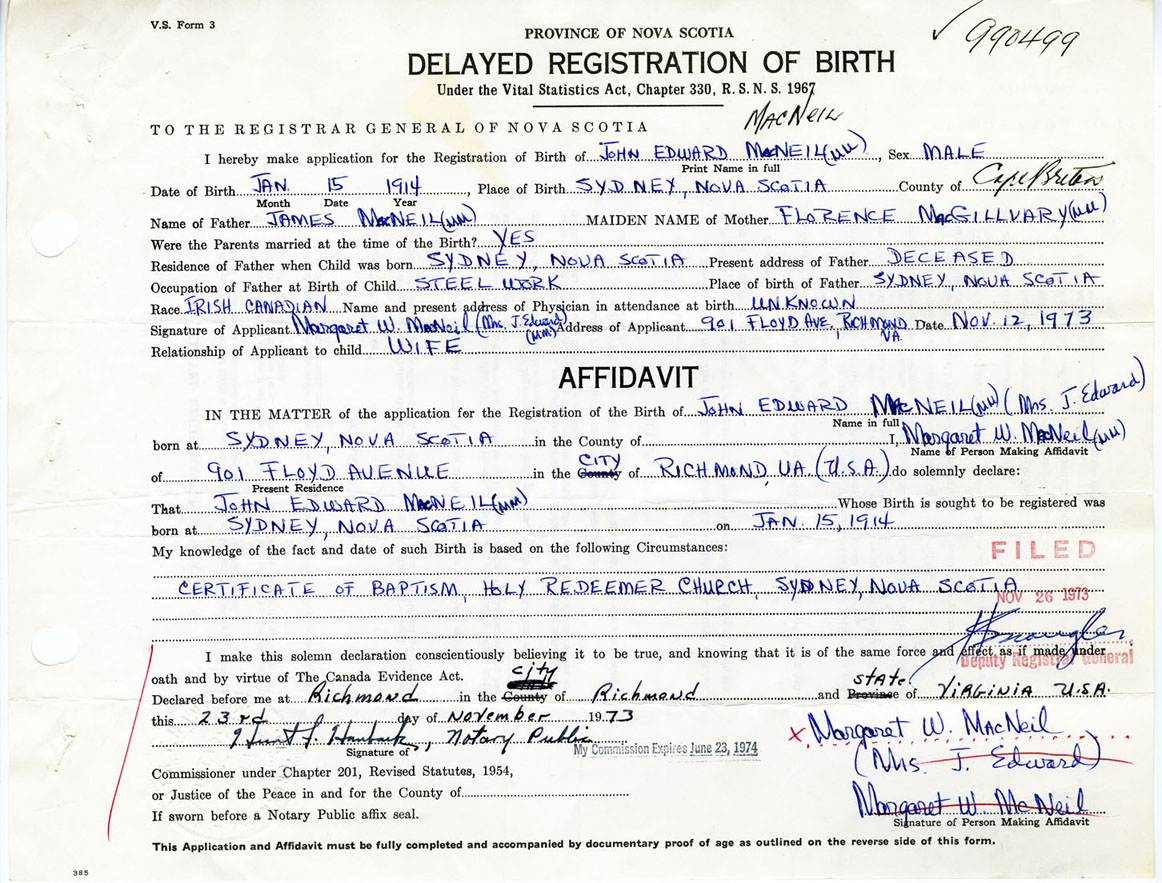 V.S. Form 3
990499
PROVINCE OF NOVA SCOTIA
DELAYED REGISTRATION OF BIRTH
Under the Vital Statistics Act, Chapter 330, R. S. N. S. 1967
MacNeil
TO THE REGISTRAR GENERAL OF NOVA SCOTIA
I hereby make application for the Registration of Birth of JOHN EDWARD MacNEIL (MM), Sex MALE
Print Name in full
Date of Birth JAN. 15 1914, Place of Birth SYDNEY, NOVA SCOTIA County of Cape Breton
Month Date Year
Name of Father JAMES MacNEIL (MM) MAIDEN NAME of Mother FLORENCE MacGILLVARY (MM)
Were the Parents married at the time of the Birth? YES
Residence of Father when Child was born SYDNEY, NOVA SCOTIA Present address of Father DECEASED
Occupation of Father at Birth of Child STEEL WORK Place of birth of Father SYDNEY, NOVA SCOTIA
Race IRISH CANADIAN Name and present address of Physician in attendance at birth UNKNOWN
Signature of Applicant Margaret W. MacNeil (Mrs. J. Edward) (MM) Address of Applicant 901 FLOYD AVE, RICHMOND VA. Date NOV. 12, 1973
Relationship of Applicant to child WIFE
AFFIDAVIT
IN THE MATTER of the application for the Registration of the Birth of JOHN EDWARD MacNEIL (MM) (Mrs. J. Edward)
Name in full
born at SYDNEY, NOVA SCOTIA in the County of I, Margaret W. MacNeil (MM)
Name of Person Making Affidavit
of 901 FLOYD AVENUE in the County CITY of RICHMOND, VA (U.S.A.) do solemnly declare:
Present Residence
That JOHN EDWARD MacNEIL (MM) Whose Birth is sought to be registered was
born at SYDNEY, NOVA SCOTIA on JAN. 15, 1914
My knowledge of the fact and date of such Birth is based on the following Circumstances:
FILED
CERTIFICATE OF BAPTISM, HOLY REDEEMER CHURCH, SYDNEY, NOVA SCOTIA
NOV 26 1973
I make this solemn declaration conscientiously believing it to be true, and knowing that it is of the same force and effect as if made under
Deputy Registrar General
oath and by virtue of The Canada Evidence Act.
Declared before me at Richmond in the County city of Richmond and Province state of VIRGINIA U.S.A.
this 23rd day of November 1973
Notary Public
Signature of
My Commission Expires June 23, 1974
x Margaret W. MacNeil
(Mrs. J. Edward)
Margaret W. McNeil
Signature of Person Making Affidavit
Commissioner under Chapter 201, Revised Statutes, 1954,
or Justice of the Peace in and for the County of
If sworn before a Notary Public affix seal.
This Application and Affidavit must be fully completed and accompanied by documentary proof of age as outlined on the reverse side of this form.
385